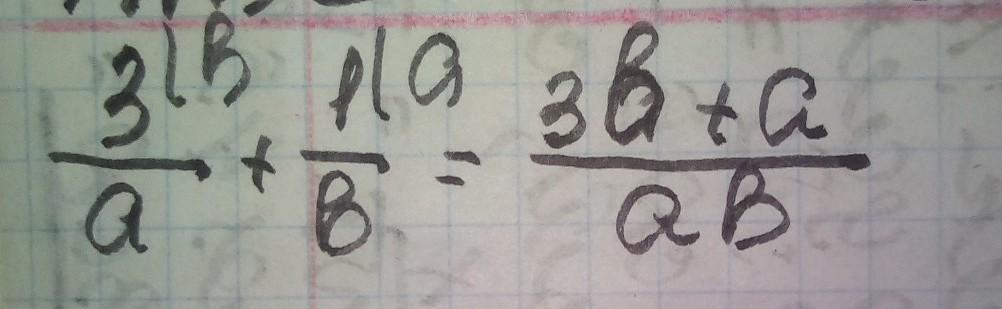 3\b/a + 1\a/b = 3b+a/ab